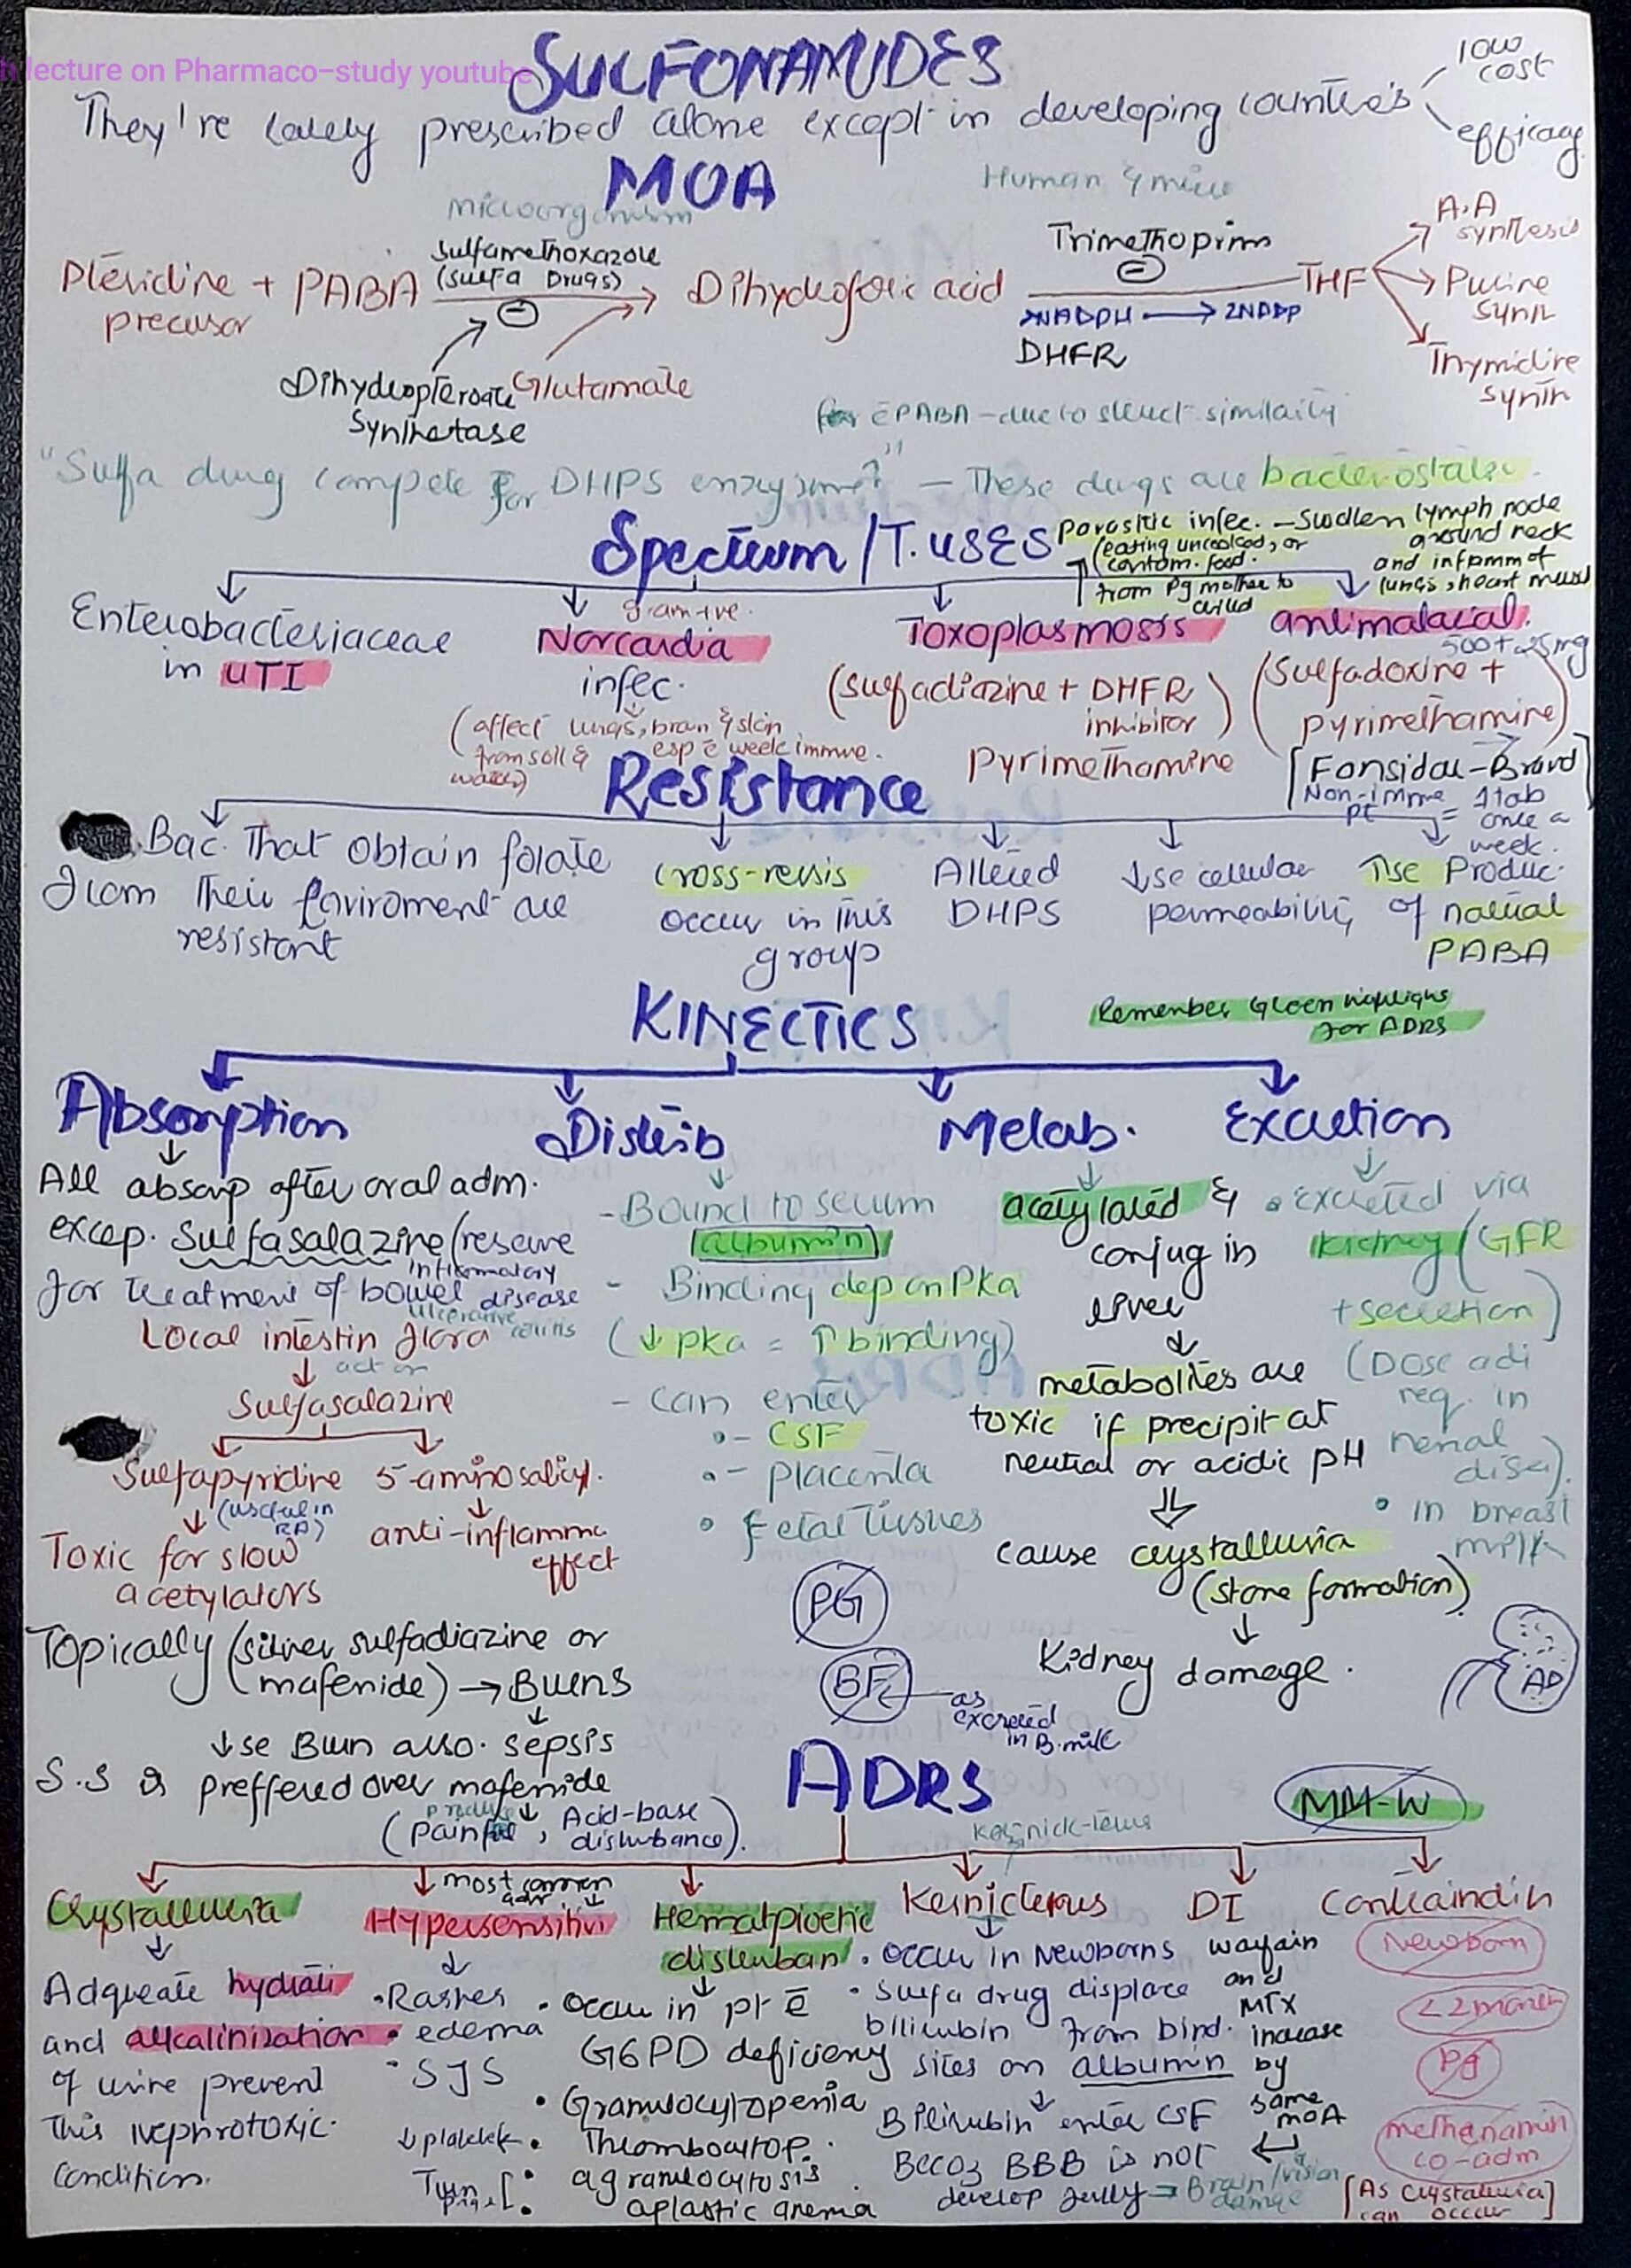 lecture on Pharmaco-study youtube
SULFONAMIDES
They're rarely prescribed alone except in developing countries
low cost
efficacy
MOA
microorganism
Human & mice
Pteridine precusor + PABA
Sulfamethoxazole
(sulfa Drugs)
Dihydropteroate Synthetase
Glutamate
Dihydrofolic acid
Trimethoprim
2NADPH → 2NADP
DHFR
THF
A.A synthesis
Purine synth
Thymidine synth
for c̄ PABA - due to struct similarity
"Sulfa drug compete for DHPS enzyme" - These drugs are bacteriostatic.
Spectrum / T. USES
parasitic infec.
(eating uncooked, or
contam. food.
from Pg mother to
child
- Swollen lymph node
around neck
and inflamm of
lungs, heart muscl
Enterobacteriaceae
in UTI
gram +ve.
Norcardia
infec.
(affect lungs, brain & skin
from soil & water)
esp c̄ week immune.
Toxoplasmosis
(sulfadiazine + DHFR
inhibitor)
Pyrimethamine
antimalarial.
500 + 25mg
(Sulfadoxine +
pyrimethamine)
[Fansidar - Brand]
Non-immne pt = 1 tab
once a
week.
Resistance
Bac. That obtain folate
from their Enviroment are
resistant
Cross-resis
occur in this
group
Altered
DHPS
↓se cellular
permeability
↑se Produc.
of natural
PABA
KINECTICS
Remember Green highlighs
for ADRS
Absorption
All absorp after oral adm.
excep. Sulfasalazine (reserve
for treatment of inflammatory bowel disease
ulcerative colitis
Local intestin flora
↓ act on
Sulfasalazine
Sulfapyridine
(useful in
RA)
Toxic for slow
acetylators
5-aminosalicyl.
anti-inflamm
effect
Topically (silver sulfadiazine or
mafenide) → Burns
↓se Burn asso. sepsis
S.S is preffered over mafenide
produce
(painful, Acid-base
disturbance).
Distrib
- Bound to serum
albumin
- Binding dep on Pka
(↓ pka = ↑ binding)
- Can enter
- CSF
- placenta
Fetal Tissues
PG
BF ← as
excreted
in B.milk
Metab.
acetylated &
conjug in
liver
metabolites are
toxic if precipit at
neutral or acidic pH
cause crystalluria
(stone formation)
Kidney damage.
Excretion
excreted via
kidney (GFR
+ secretion)
(Dose adj
req. in
renal
dise).
In breast
milk
AD
ADRS
MM-W
Crystalluria
Adqueate hydrati
and alkalinization
of urine prevent
this nephrotoxic.
Condition.
most common
adr
Hypersensitivi
Rashes
edema
SJS
Hematpioetic
disturban
Occur in pt c̄
G6PD deficieny
Granulocytopenia
↓ platelets
Thrombocytop.
agranulocytosis
aplastic anemia
Kernicterus
occur in Newborns
Sulfa drug displace
bilirubin from bind.
sites on albumin
Bilirubin enter CSF
Becoz BBB is not
develop fully ⇒ Brain/vision
damage
DI
warfain
and
MTX
increase
by
same
MOA
Contraindin
Newborn
<2 month
Pg
methenamin
co-adm
[As crystalluria
can occur]